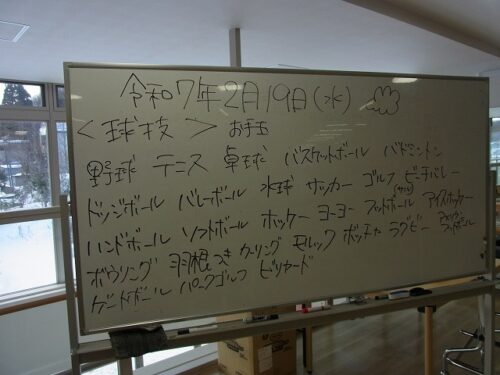 令和7年2月19日(水)
<球技> お手玉
野球 テニス 卓球 バスケットボール バドミントン
ドッジボール バレーボール 水球 サッカー ゴルフ ビーチバレー
ハンドボール ソフトボール ホッケー ヨーヨー フットボール アイスホッケー
ボウリング 羽根つき カーリング モルック ボッチャ ラグビー
ゲートボール パークゴルフ ビリヤード